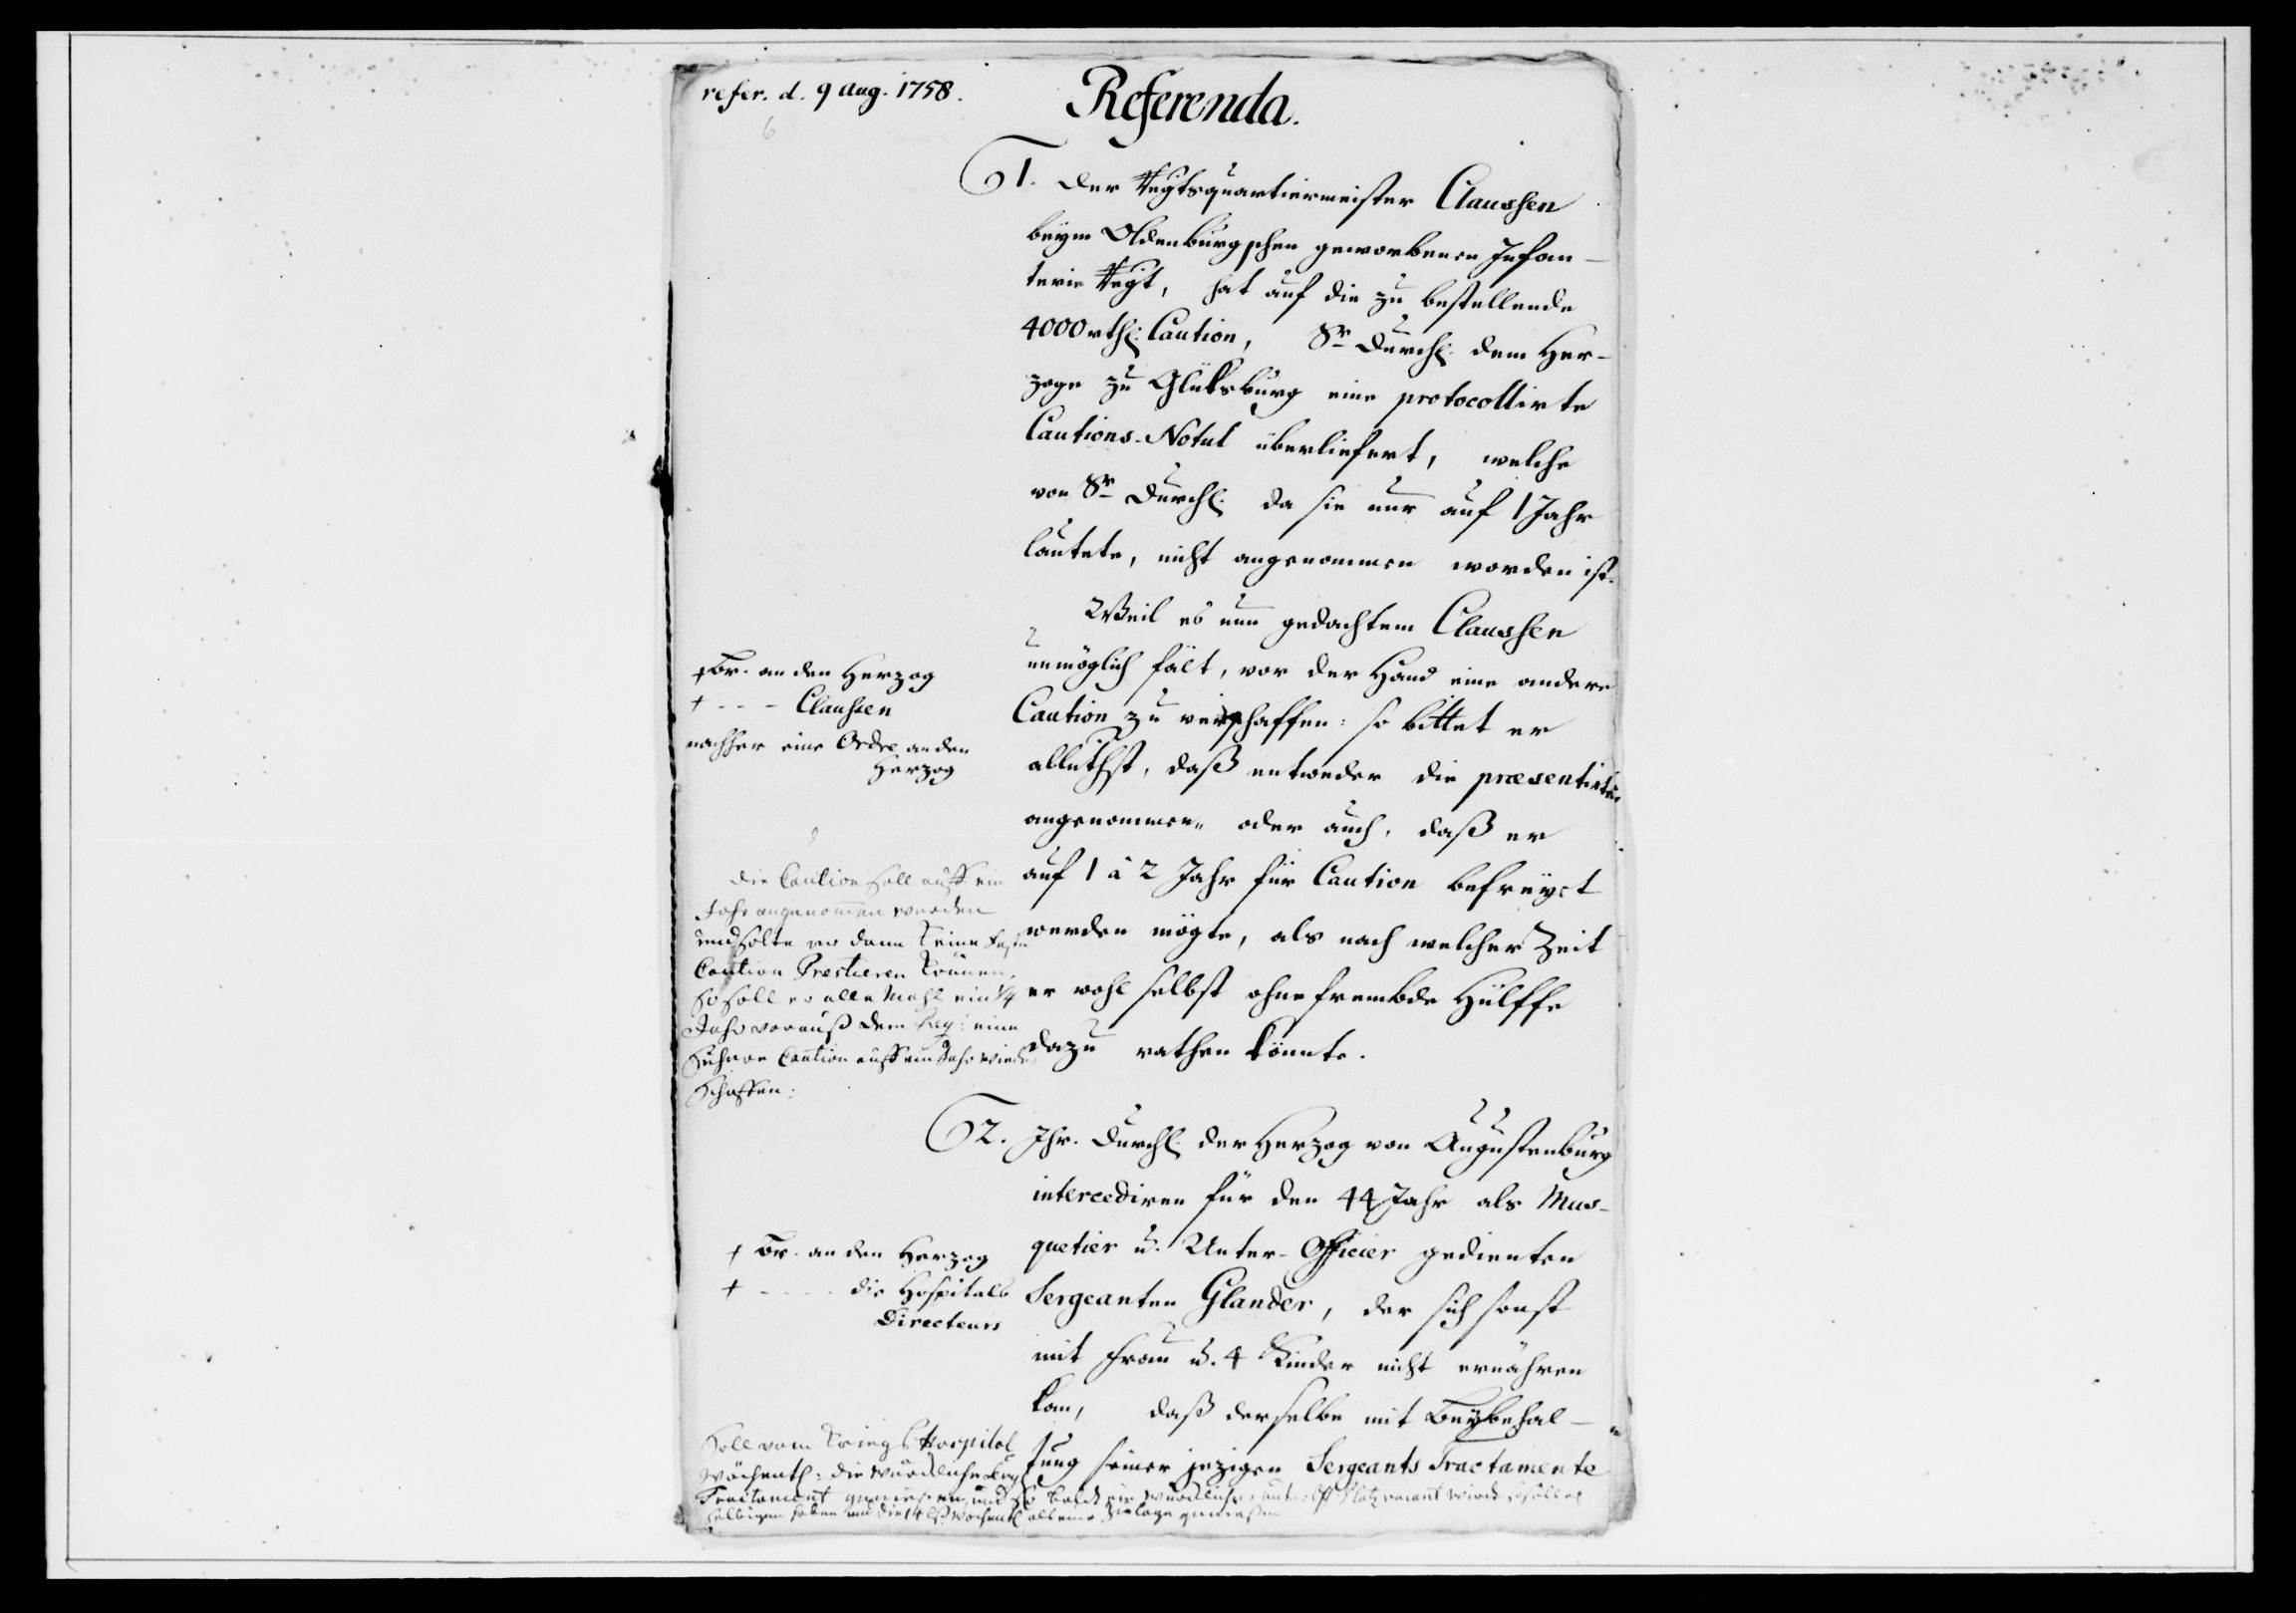 refer. d. 9 Aug. 1758.
Referenda.
1. Der Regtsquartiermeister Claussen
beym Oldenburgschen geworbenen Infan-
terie Regt, hat auf die zu bestellende
4000 rthl. Caution, Sr Durchl. dem Her-
zoge zu Glüksburg eine protocollirte
Cautions-Notul überliefert, welche
von Sr Durchl. da sie nur auf 1 Jahr
lautete, nicht angenommen worden ist.
Weil es nun gedachtem Claussen
unmöglich fält, vor der Hand eine andere
Caution zu verschaffen: so bittet er
alluthst, daß entweder die præsentirte
angenommen, oder auch, daß er
auf 1 à 2 Jahr für Caution befreyet
werden mögte, als nach welcher Zeit
er wohl selbst ohne frembde Hülffe
dazu rathen könnte.
+ Br. an den Herzog
+ - - - Claussen
nachher eine Ordre an den
Herzog
die Caution soll auff ein
Jahr angenommen werden
und solte er dann keine
Caution Prestieren können,
so soll er alle Mahl ein 1/4
Jahr vorauß dem Reg: eine
sichere Caution auff ein Jahr wieder
schaffen:
2. Ihr. Durchl. der Herzog von Augustenburg
intercediren für den 44 Jahr als Mus-
quetier u. Unter-Officier gedienten
Sergeanten Glander, der sich sonst
mit Frau u. 4 Kinder nicht ernähren
kan, daß derselbe mit Beybehal-
tung seiner jezigen Sergeants Tractamente
+ Br. an den Herzog
+ - - - - die Hospitals
Directeurs
Soll vom Kriegs Hospital
Wöchentl: die würckliche
Tractament geniessen, und so baldt ein würcklicher Platz vacant wird so soll er
selbigen haben und die Wochentl als eine Zulage geniessen